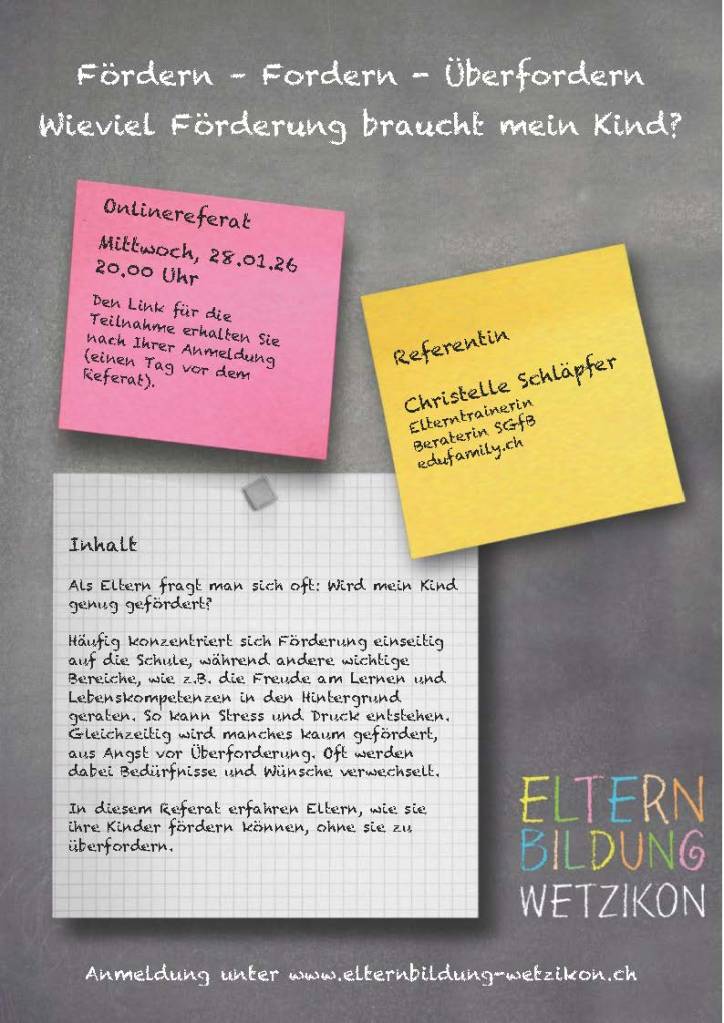 Fördern – Fordern – Überfordern
Wieviel Förderung braucht mein Kind?
Onlinereferat
Mittwoch, 28.01.26
20.00 Uhr
Den Link für die
Teilnahme erhalten Sie
nach Ihrer Anmeldung
(einen Tag vor dem
Referat).
Referentin
Christelle Schläpfer
Elterntrainerin
Beraterin SGfB
edufamily.ch
Inhalt
Als Eltern fragt man sich oft: Wird mein Kind
genug gefördert?
Häufig konzentriert sich Förderung einseitig
auf die Schule, während andere wichtige
Bereiche, wie z.B. die Freude am Lernen und
Lebenskompetenzen in den Hintergrund
geraten. So kann Stress und Druck entstehen.
Gleichzeitig wird manches kaum gefördert,
aus Angst vor Überforderung. Oft werden
dabei Bedürfnisse und Wünsche verwechselt.
In diesem Referat erfahren Eltern, wie sie
ihre Kinder fördern können, ohne sie zu
überfordern.
ELTERN
BILDUNG
WETZIKON
Anmeldung unter www.elternbildung-wetzikon.ch